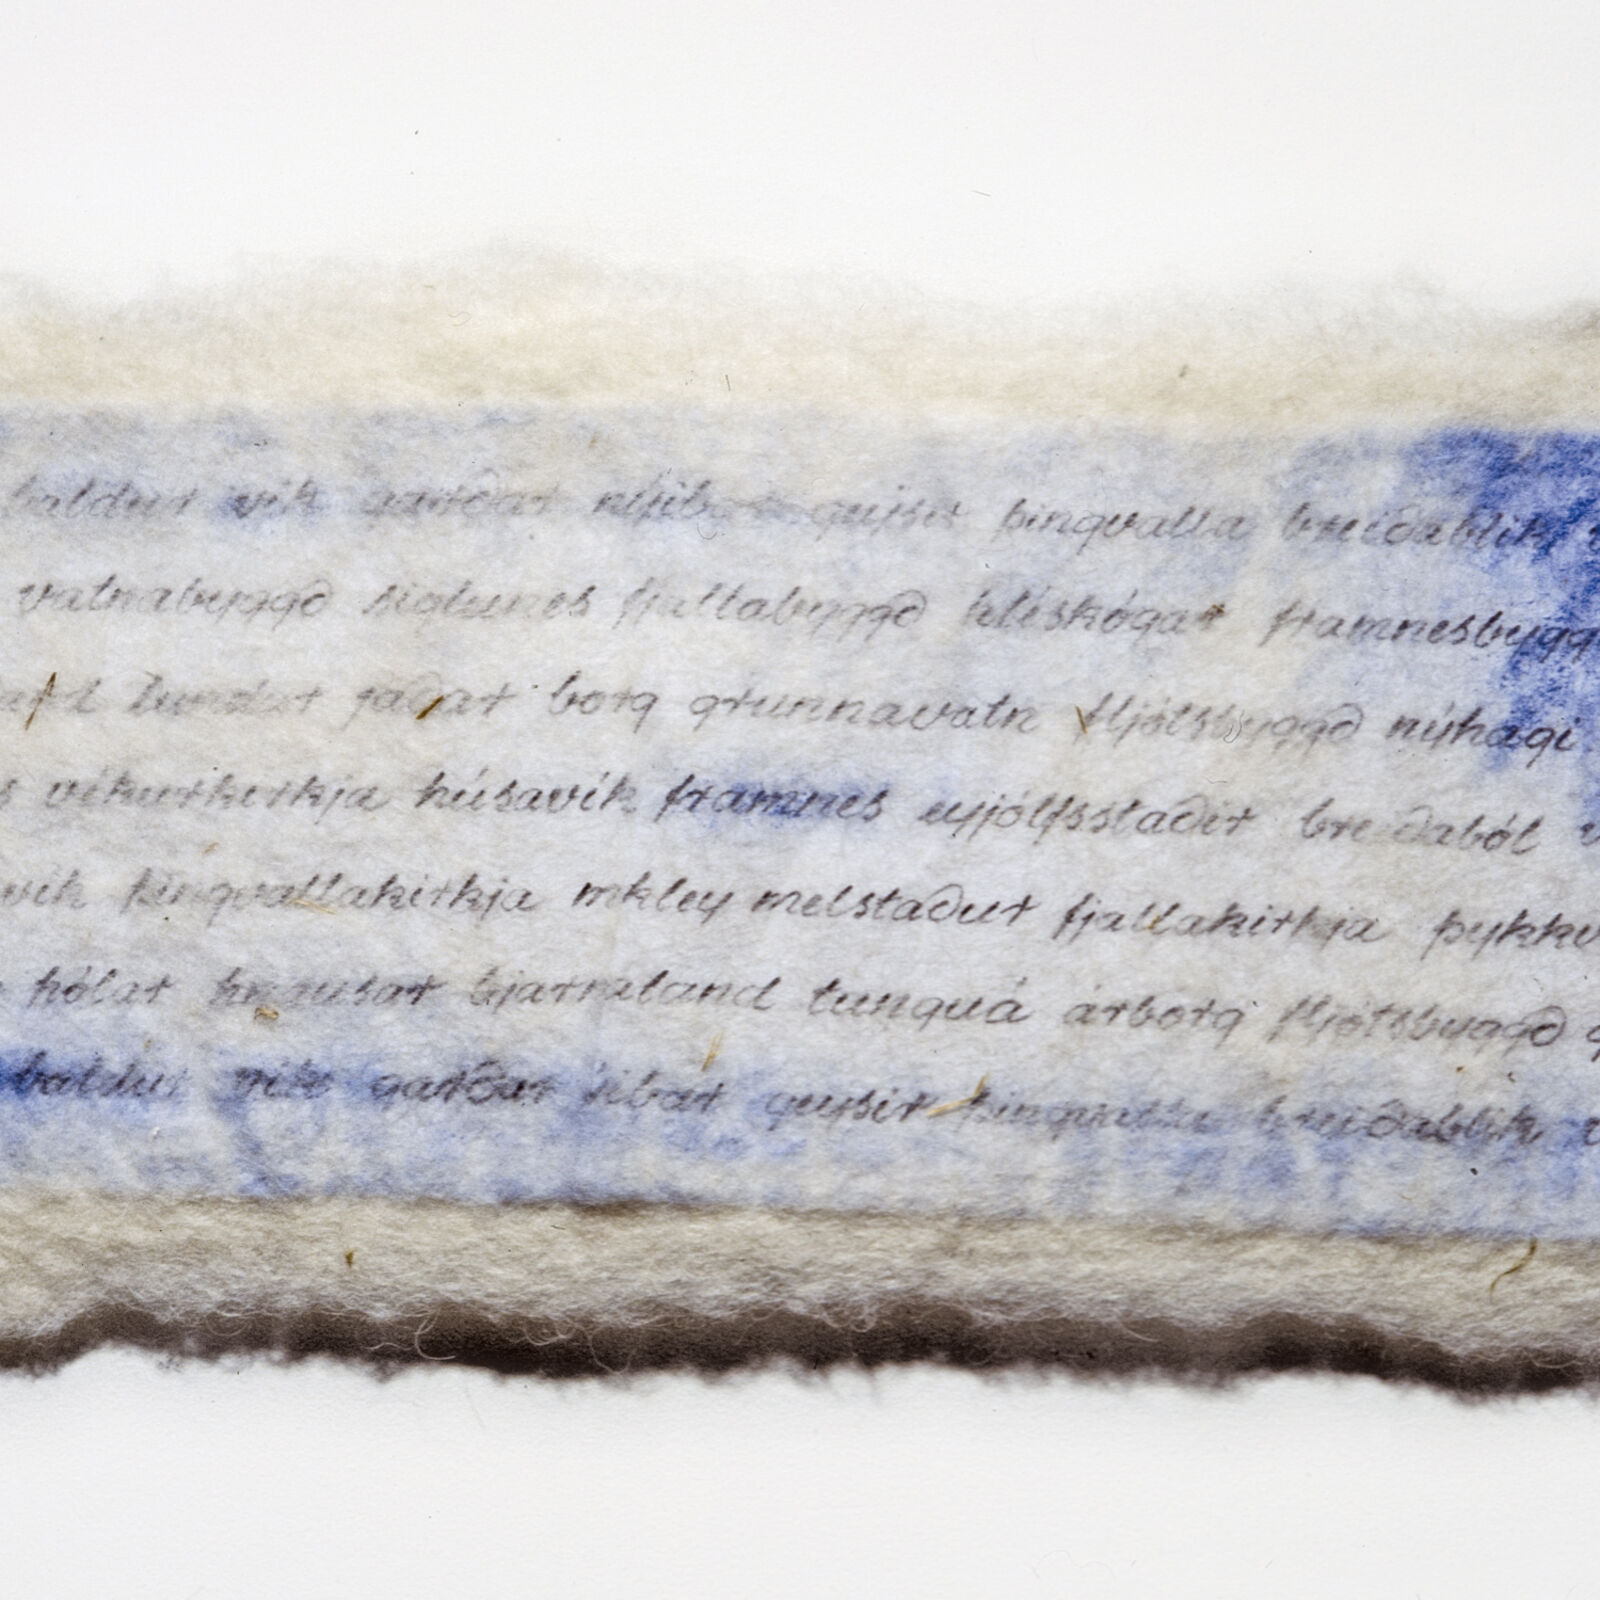 baldur vik garðar nýibær geysir þingvalla breiðablik
vatnabyggð siglunes fjallabyggð hléskógar framnesbygg
lundar jaðar borg grunnavatn fljótsbyggð nýhagi
víkurkirkja húsavík framnes eyjólfsstaðir breiðaból
vík þingvallakirkja mikley melstaður fjallakirkja þykkv
hólar bjarmaland tunguá árborg fljótsbyggð
baldur vik garðar ribar geysir þingvalla breiðablik